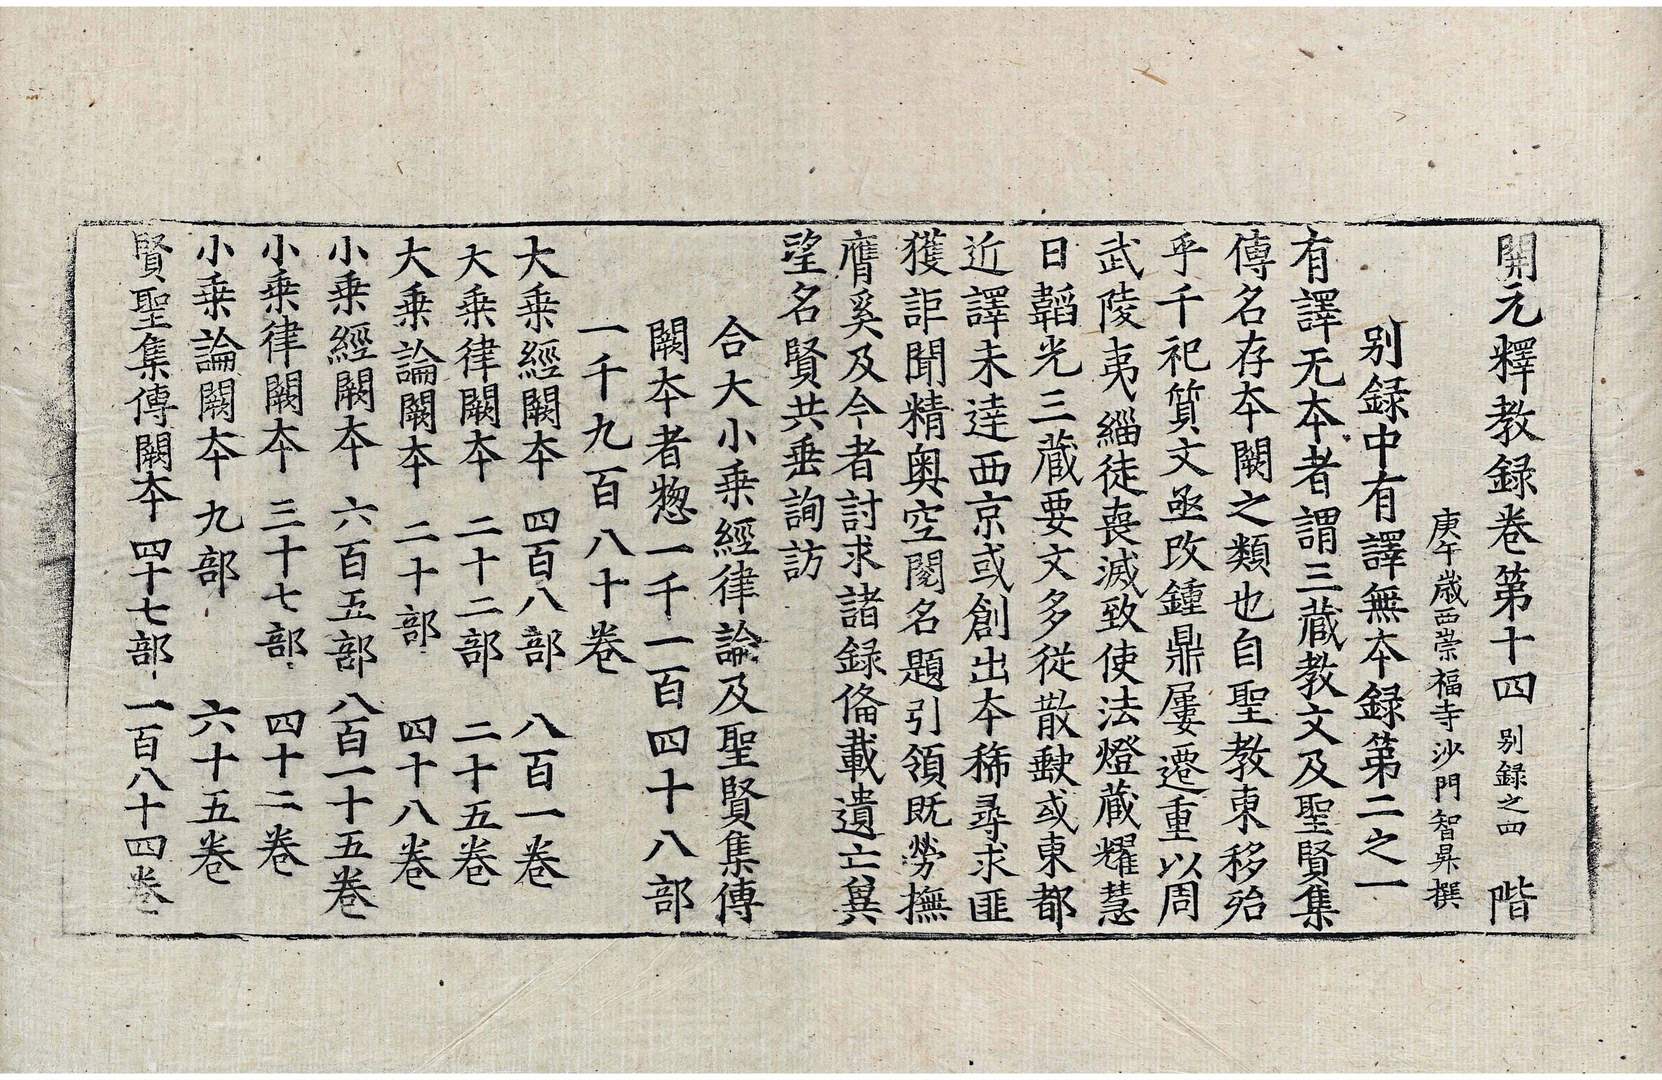 開元釋教録卷第十四 别録之四 階
庚午歲西崇福寺沙門智昇撰
别録中有譯無本録第二之一
有譯无本者謂三藏教文及聖賢集
傳名存本闕之類也自聖教東移殆
乎千祀質文亟改鍾鼎屢遷重以周
武陵夷緇徒喪滅致使法燈藏耀慧
日韜光三藏要文多從散缺或東都
近譯未達西京或創出本稀尋求匪
獲詎聞精奥空閲名題引領既勞撫
膺奚及今者討求諸録俻載遺亡兾
望名賢共垂詢訪
合大小乗經律論及聖賢集傳
闕本者惣一千一百四十八部
一千九百八十卷
大乗經闕本 四百八部 八百一卷
大乗律闕本 二十二部 二十五卷
大乗論闕本 二十部 四十八卷
小乗經闕本 六百五部 八百一十五卷
小乗律闕本 三十七部 四十二卷
小乗論闕本 九部 六十五卷
賢聖集傳闕本 四十七部 一百八十四卷